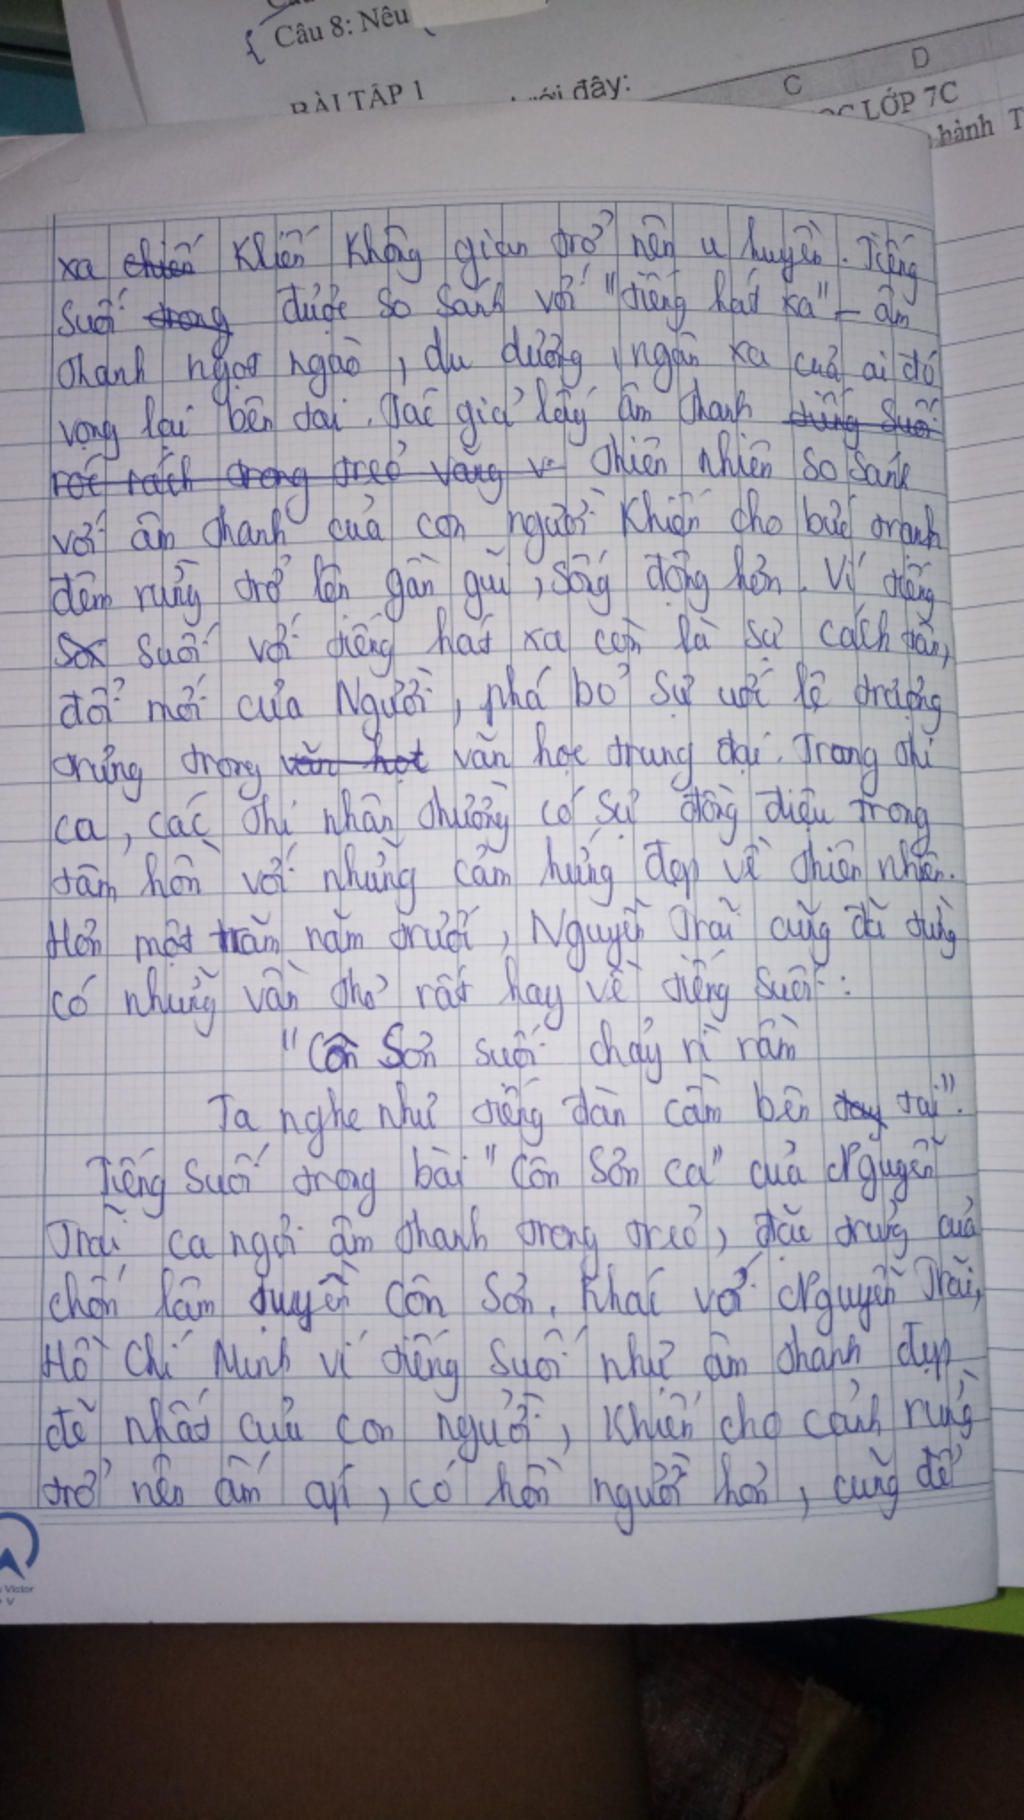 Câu 8: Nêu
BÀI TẬP 1
đây:
C D
LỚP 7C
hành T
xa chiến khiến không gian trở nên u huyền. Tiếng
suối trong được so sánh với "tiếng hát xa" – âm
thanh ngọt ngào, du dương, ngân xa của ai đó
vọng lại bên tai. Tác giả lấy âm thanh tiếng suối
róc rách trong trẻo vắng v thiên nhiên so sánh
với âm thanh của con người khiến cho bức tranh
đêm rừng trở lên gần gũi, sống động hơn. Ví tiếng
sox suối với tiếng hát xa còn là sự cách tân,
đổi mới của Người, phá bỏ sự ước lệ tượng
trưng trong văn học văn học trung đại. Trong thi
ca, các thi nhân thường có sự đồng điệu trong
tâm hồn với những cảm hứng đẹp về thiên nhiên.
Hơn một trăm năm trước, Nguyễn Trãi cũng đã từng
có những vần thơ rất hay về tiếng suối:
"Côn Sơn suối chảy rì rầm
Ta nghe như tiếng đàn cầm bên tay tai".
Tiếng suối trong bài "Côn Sơn ca" của Nguyễn
Trãi ca ngợi âm thanh trong trẻo, đặc trưng của
chốn lâm tuyền Côn Sơn. Khác với Nguyễn Trãi,
Hồ Chí Minh ví tiếng suối như âm thanh đẹp
đẽ nhất của con người, khiến cho cảnh rừng
trở nên ấm áp, có hồn người hơn, cũng để
Victor
V